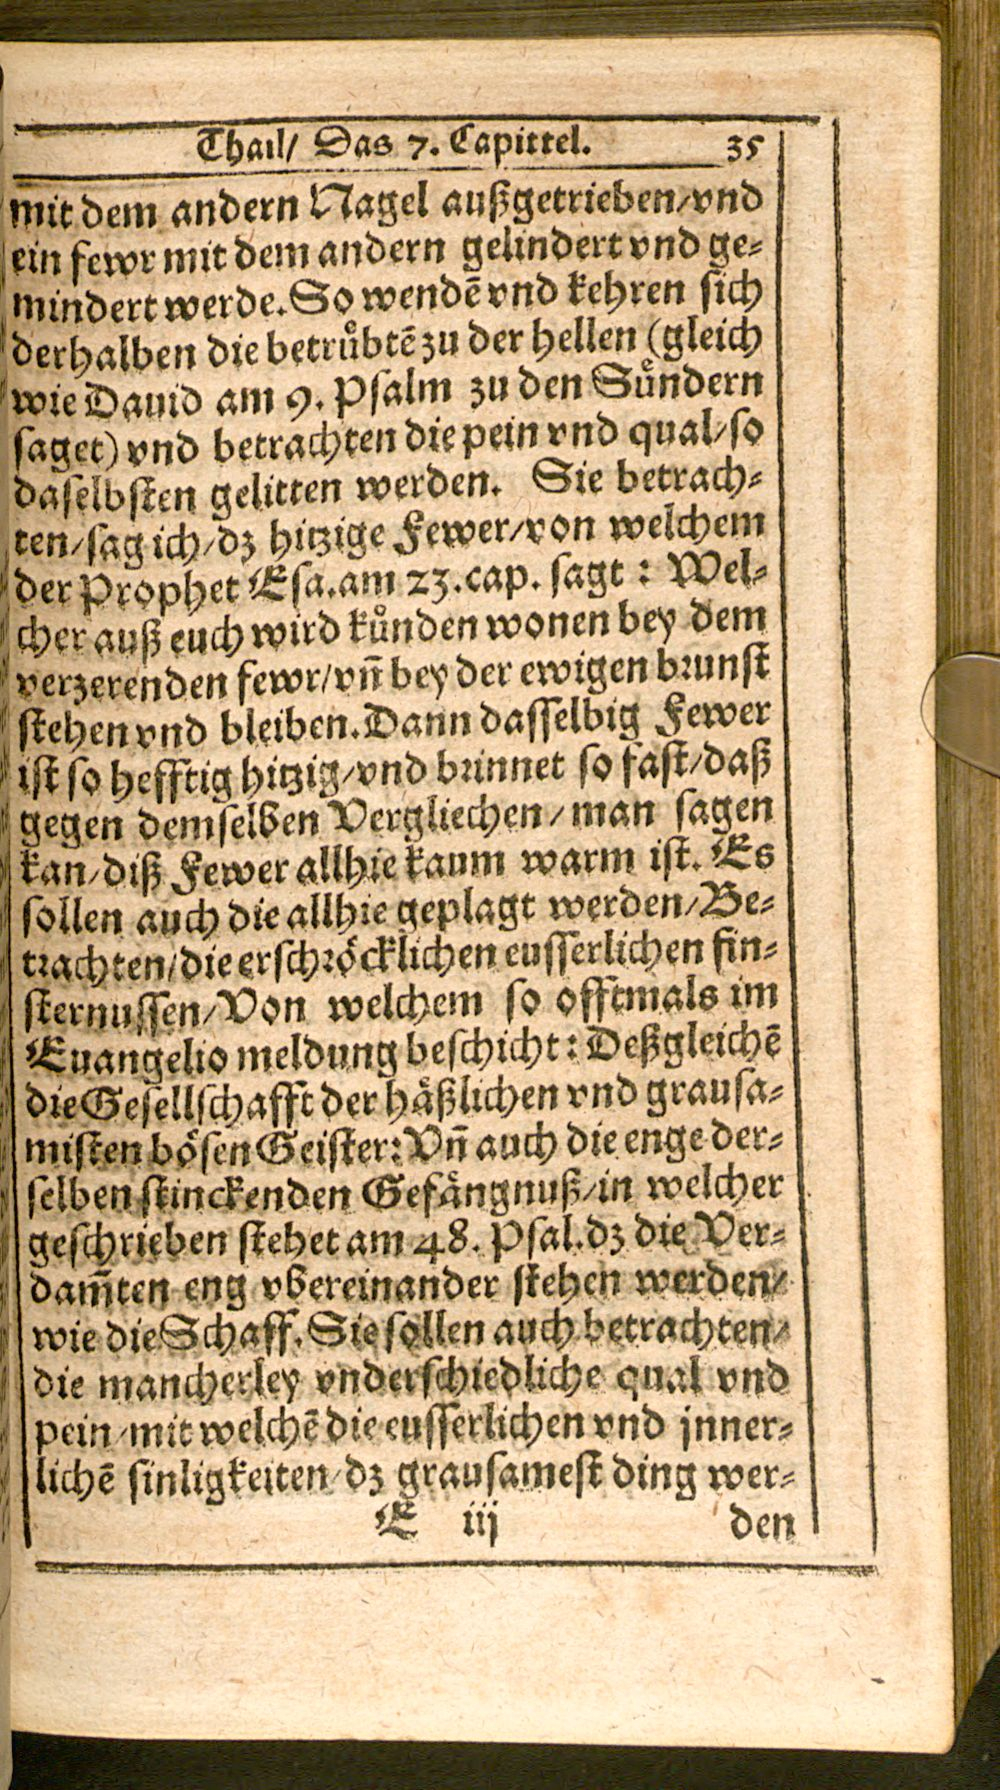 Thail/ Das 7. Capittel. 35
mit dem andern Nagel außgetrieben/vnd
ein fewr mit dem andern gelindert vnd ge-
mindert werde. So wendẽ vnd kehren sich
derhalben die betrůbtẽ zu der hellen (gleich
wie Dauid am 9. Psalm zu den Sůndern
saget) vnd betrachten die pein vnd qual/so
daselbsten gelitten werden. Sie betrach-
ten/sag ich/dz hitzige Fewer/von welchem
der Prophet Esa. am 23. cap. sagt: Wel-
cher auß euch wird kůnden wonen bey dem
verzerenden fewr/vñ bey der ewigen brunst
stehen vnd bleiben. Dann dasselbig Fewer
ist so hefftig hitzig/vnd brinnet so fast/daß
gegen demselben Vergliechen/man sagen
kan/diß Fewer allhie kaum warm ist. Es
sollen auch die allhie geplagt werden/Be-
trachten/die erschröcklichen eusserlichen fin-
sternussen/Von welchem so offtmals im
Euangelio meldung beschicht: Deßgleichẽ
die Gesellschafft der häßlichen vnd grausa-
misten bösen Geister: Vñ auch die enge der-
selben stinckenden Gefängnuß/in welcher
geschrieben stehet am 48. Psal. dz die Ver-
dam̃ten eng vbereinander stehen werden/
wie die Schaff. Sie sollen auch betrachten/
die mancherley vnderschiedliche qual vnd
pein/mit welchẽ die eusserlichen vnd jnner-
lichẽ sinligkeiten/dz grausamest ding wer-
E iij den